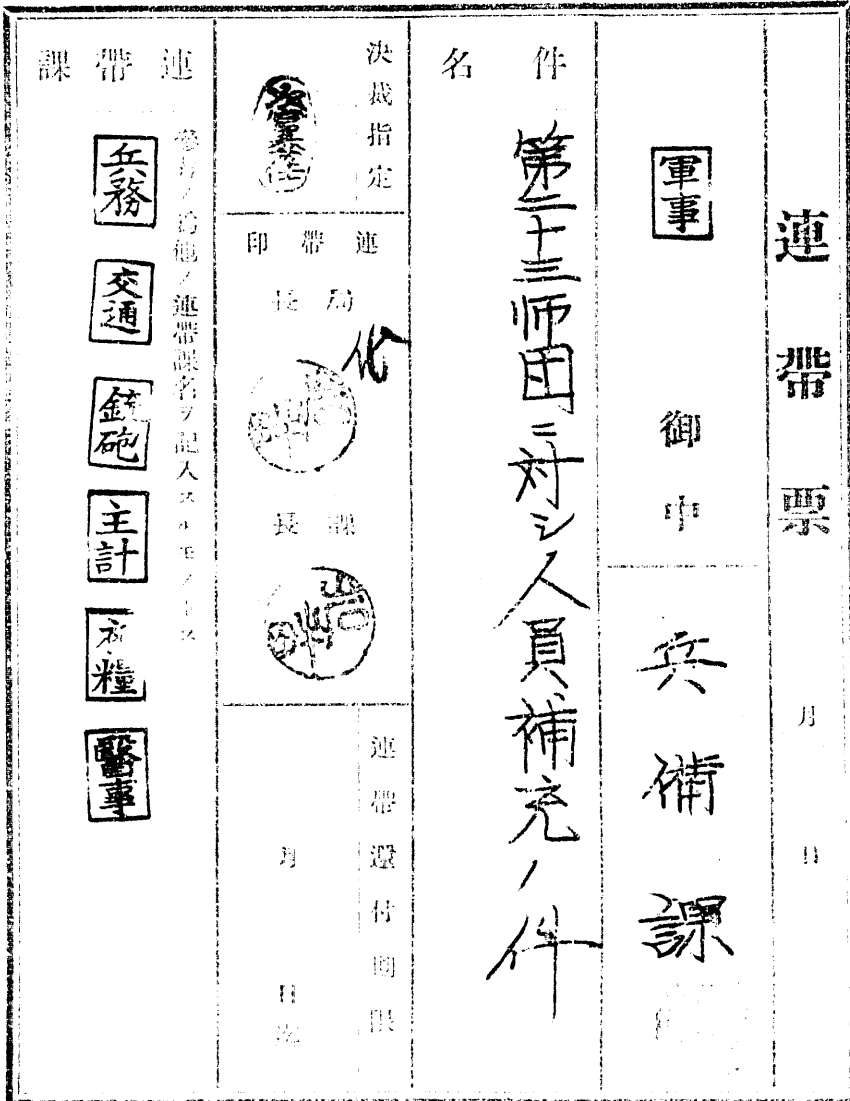 連帶票
月 日
軍事 御中
兵備課
件名
第二十三师団ニ対シ人員補充ノ件
決裁指定
連帶印
局長
代
課長
連帶還付期限
月 日迄
連帶課
參考ノ爲他ノ連帶課名ヲ記入スルモノトス
兵務
交通
銃砲
主計
衣糧
醫事